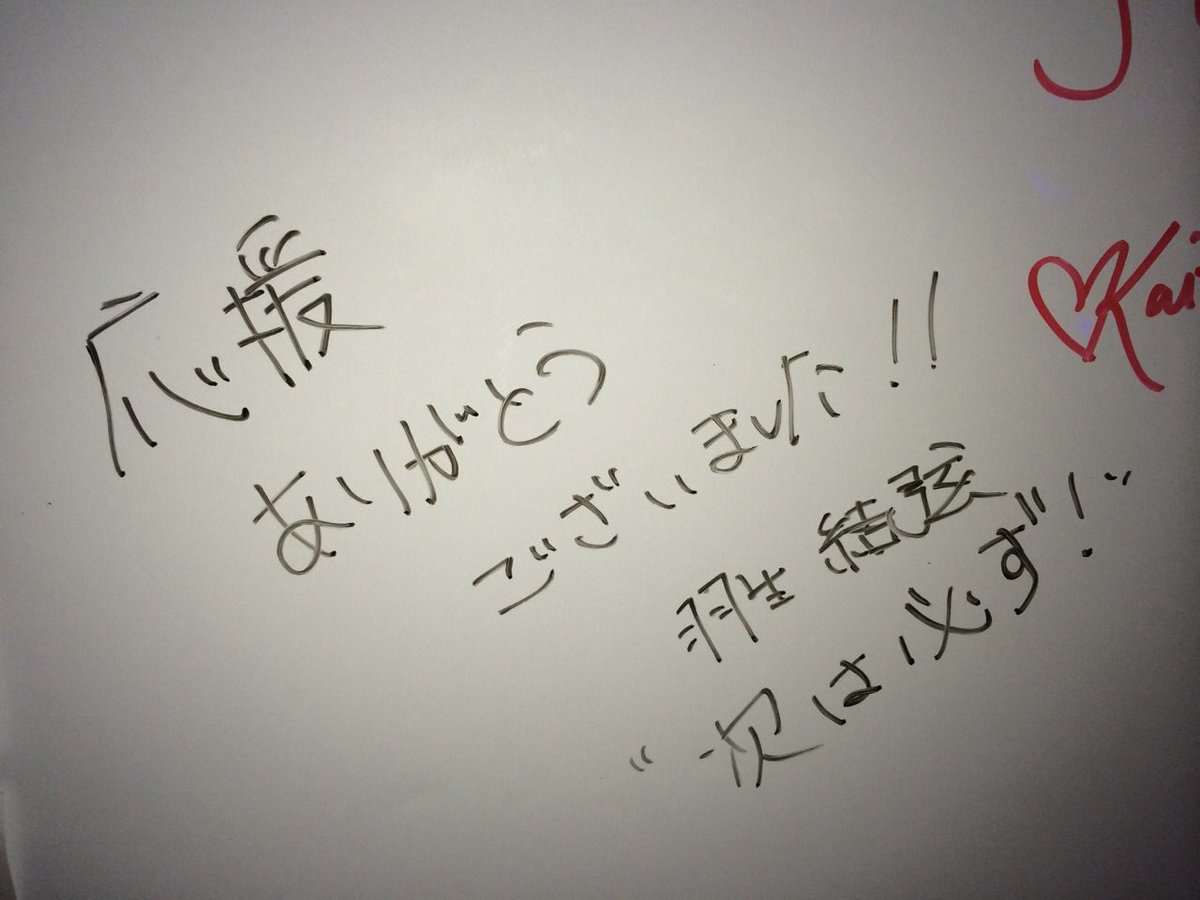 応援
ありがとう
ございました!!
羽生結弦
“次は必ず!”
J
♡Kai